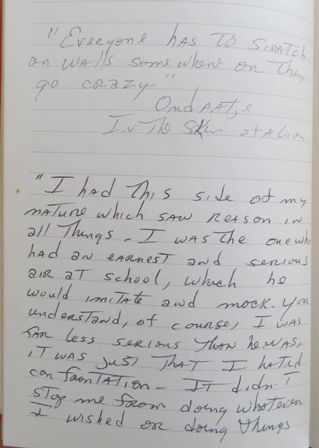 "Everyone has to scratch
on walls somewhere or they
go crazy"
Ondaatje
In the Skin of a Lion
"I had this side of my
nature which saw reason in
all things - I was the one who
had an earnest and serious
air at school, which he
would imitate and mock. You
understand, of course, I was
far less serious than he was,
it was just that I hated
confrontation - It didn't
stop me from doing whatever
I wished or doing things